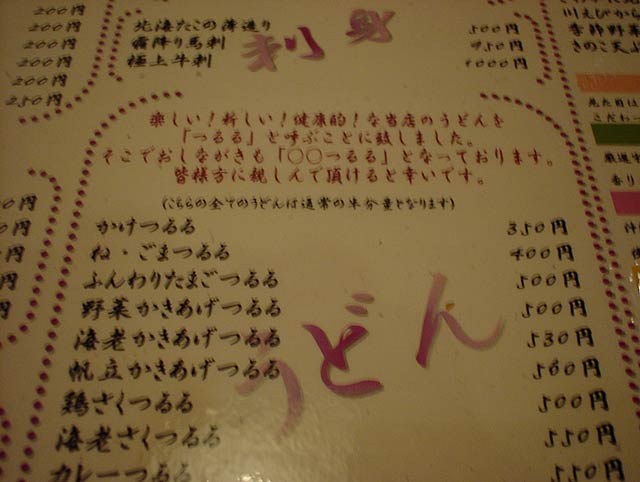 200円
200円
200円
200円
250円
北海たこの薄造り 500円
霜降り馬刺 950円
極上牛刺 1000円
刺身
川えびから
季節野菜
きのこ天ぷ
見た目は
こだわ
厳選す
香り
楽しい!新しい!健康的!な当店のうどんを
「つるる」と呼ぶことに致しました。
そこでおしながきも「〇〇つるる」となっております。
皆様方に親しんで頂けると幸いです。
(こちらの全てのうどんは通常の半分量となります)
かけつるる 350円
ね・ごまつるる 400円
ふんわりたまごつるる 500円
野菜かきあげつるる 500円
海老かきあげつるる 530円
帆立かきあげつるる 560円
鶏さくつるる 500円
海老さくつるる 550円
カレーつるる 550円
うどん